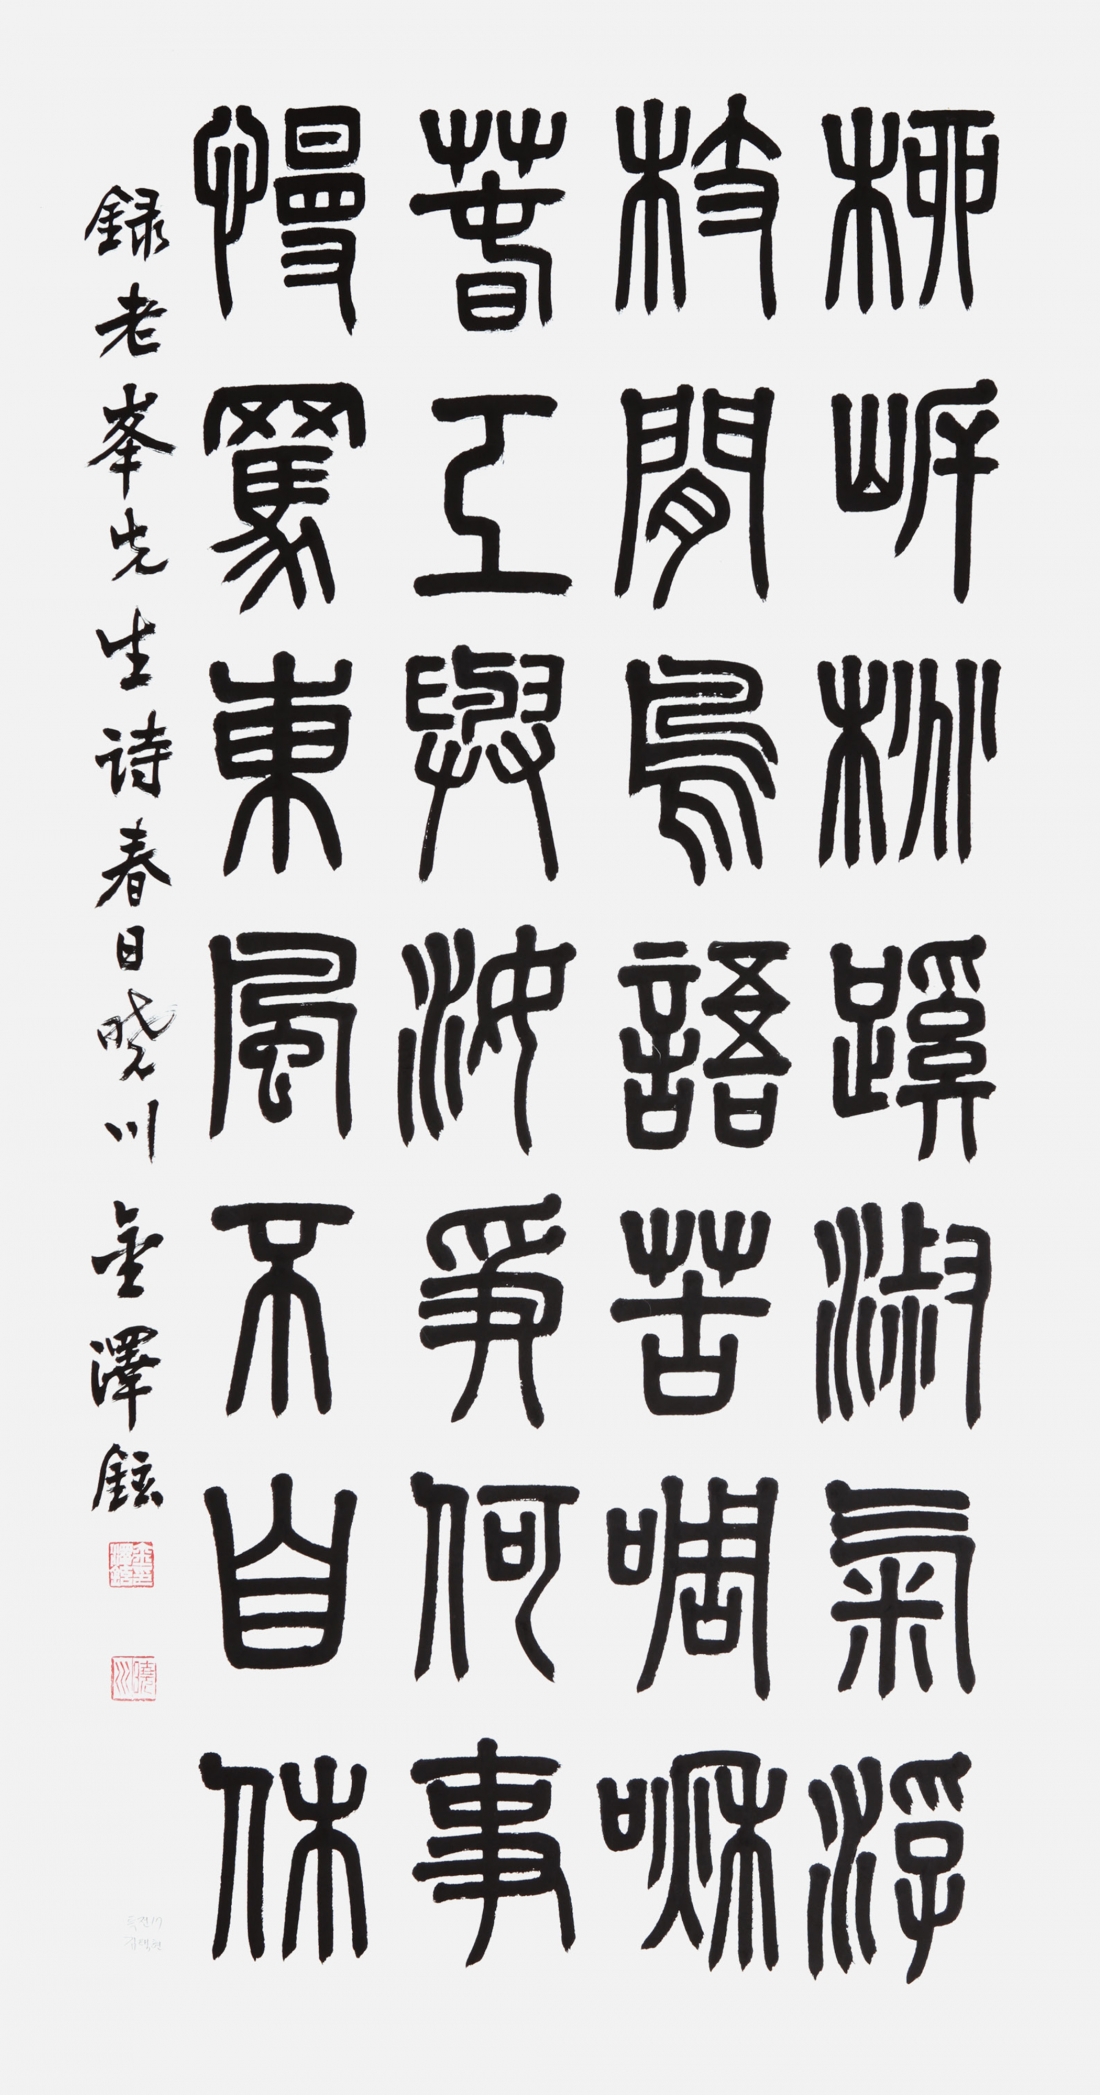 柳岸桃蹊淑氣浮
枝間鳥語苦啁啾
春工與汝爭何事
慢罵東風不自休
録老峯先生詩春日曉川金澤鉉
曉川
김택현